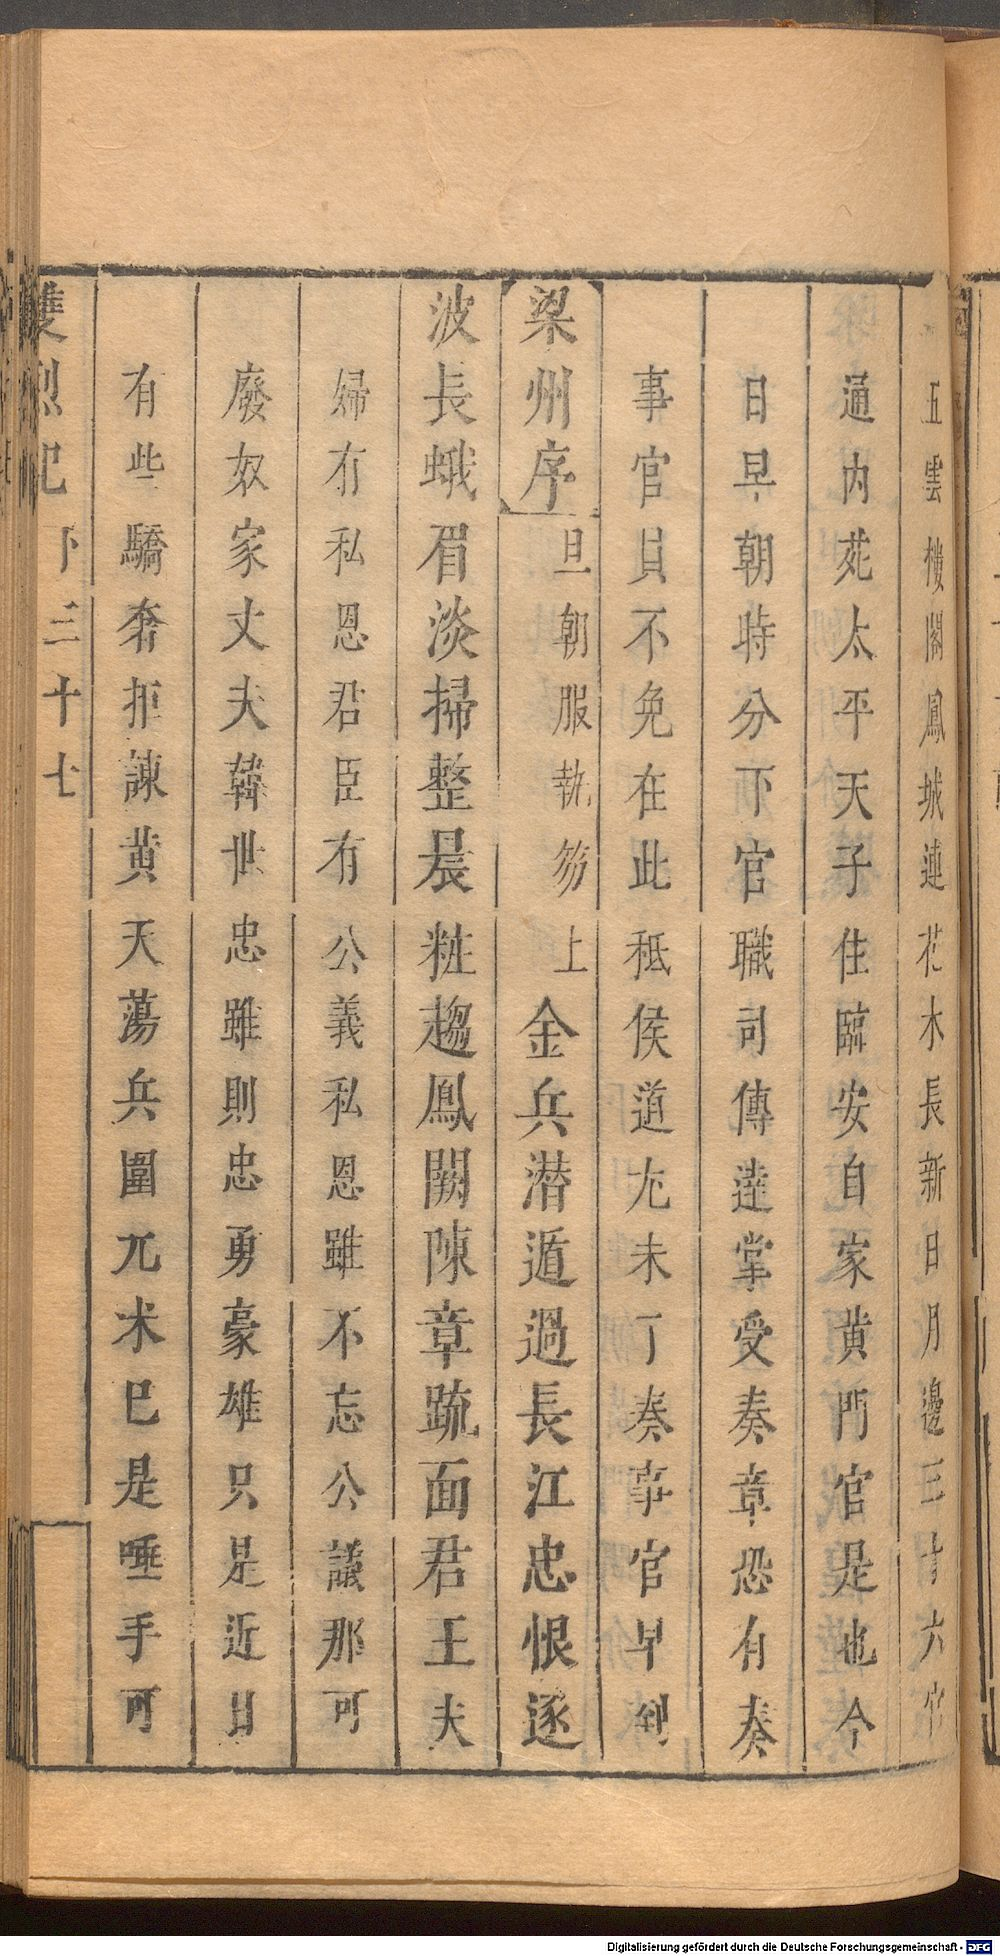 五雲樓閣鳳城連花木長新日月邊三十六宮
通內苑太平天子住臨安自家黄門官是也今
日早朝時分下官職司傳達掌受奏章恐有奏
事官員不免在此秪侯道尤未了奏事官早到
梁州序 旦朝服執笏上 金兵潜遁過長江忠恨逐
波長蛾眉淡掃整晨粧趨鳳闕陳章䟽面君王夫
婦有私恩君臣有公義私恩雖不忘公議那可
廢奴家丈夫韓世忠雖則忠勇豪雄只是近日
有些驕奢拒諫黄天蕩兵圍兀朮已是唾手可
雙烈記 下 三十七
Digitalisierung gefördert durch die Deutsche Forschungsgemeinschaft - DFG